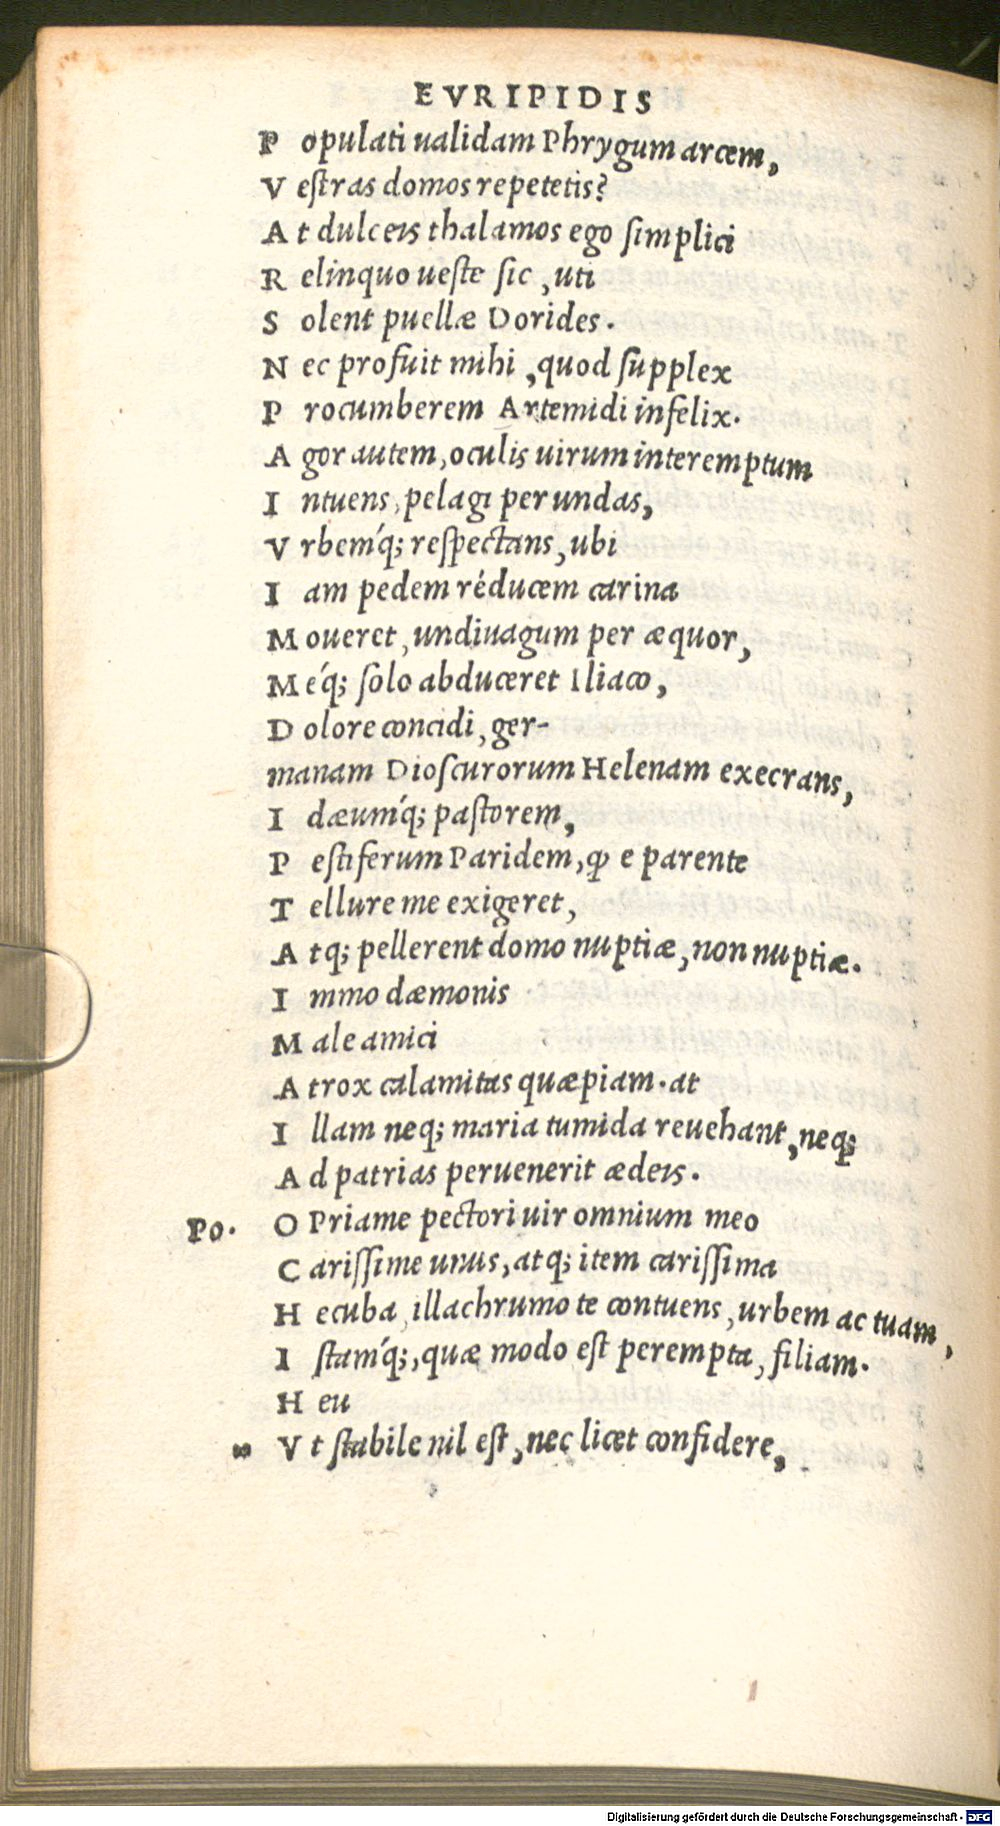 EVRIPIDIS
P opulati ualidam Phrygum arcem,
V estras domos repetetis?
A t dulceis thalamos ego simplici
R elinquo ueste sic, uti
S olent puellæ Dorides.
N ec profuit mihi, quod supplex
P rocumberem Artemidi infelix.
A gor autem, oculis uirum interemptum
I ntuens, pelagi per undas,
V rbem´q; respectans, ubi
I am pedem réducem carina
M oueret, undiuagum per æquor,
M e´q; solo abduceret Iliaco,
D olore concidi, ger-
manam Dioscurorum Helenam execrans,
I dæum´q; pastorem,
P estiferum Paridem, ꝙ e parente
T ellure me exigeret,
A tq; pellerent domo nuptiæ, non nuptiæ.
I mmo dæmonis
M ale amici
A trox calamitas quæpiam. at
I llam neq; maria tumida reuehant, neq;
A d patrias peruenerit ædeis.
Po. O Priame pectori uir omnium meo
C arissime unus, atq; item carissima
H ecuba, illachrumo te contuens, urbem ac tuam,
I stam´q;, quæ modo est perempta, filiam.
H eu
„ V t stabile nil est, nec licet confidere,
Digitalisierung gefördert durch die Deutsche Forschungsgemeinschaft - DFG